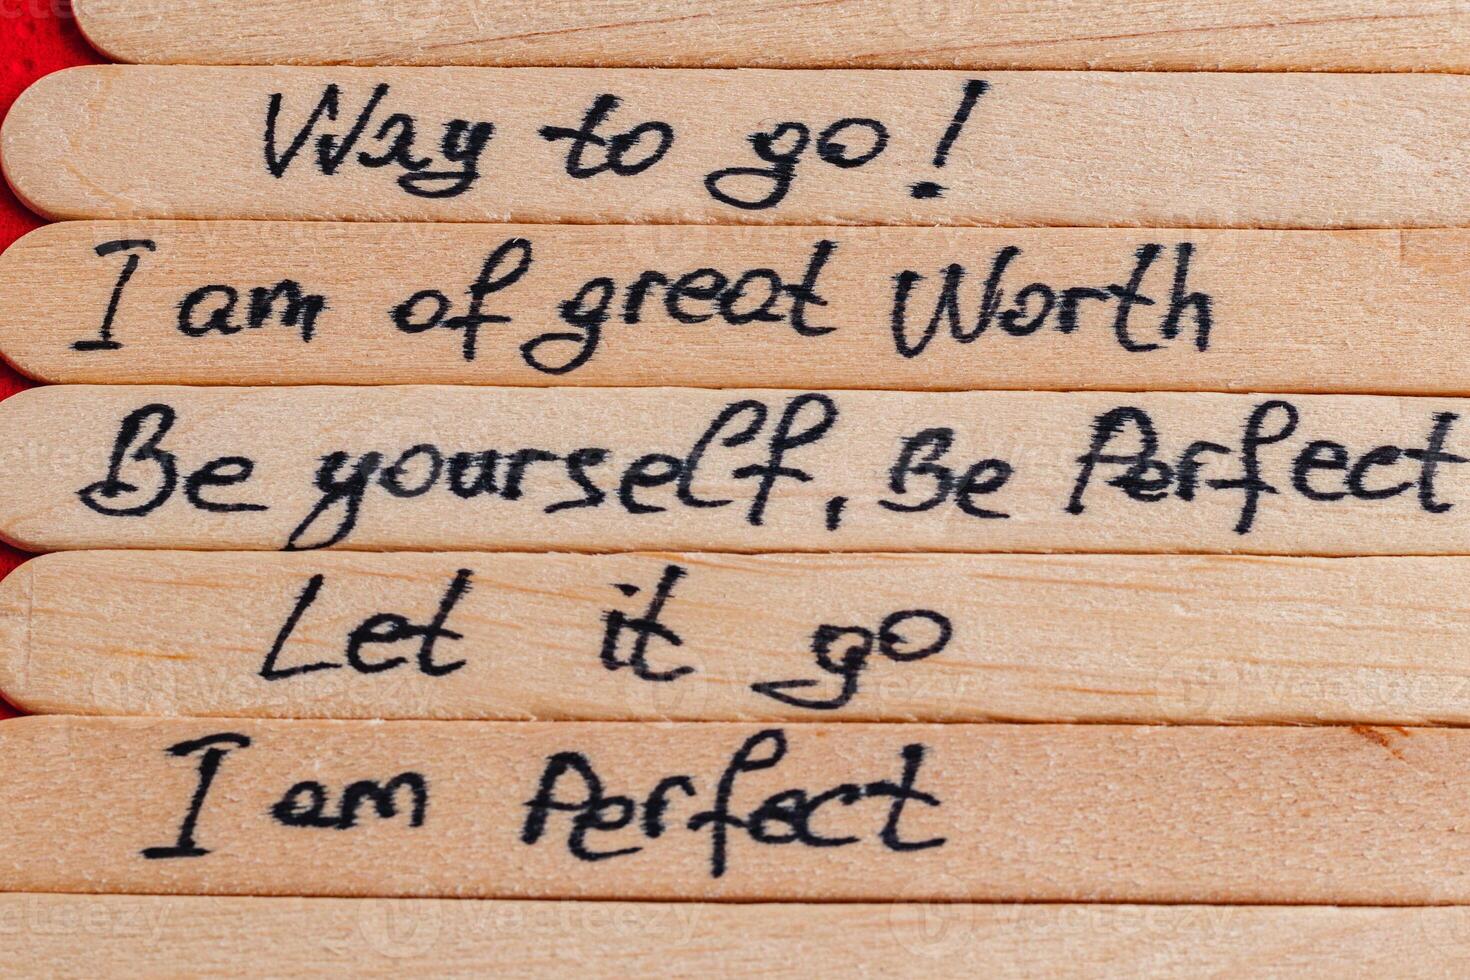 Way to go!
I am of great Worth
Be yourself, Be Perfect
Let it go
I am Perfect